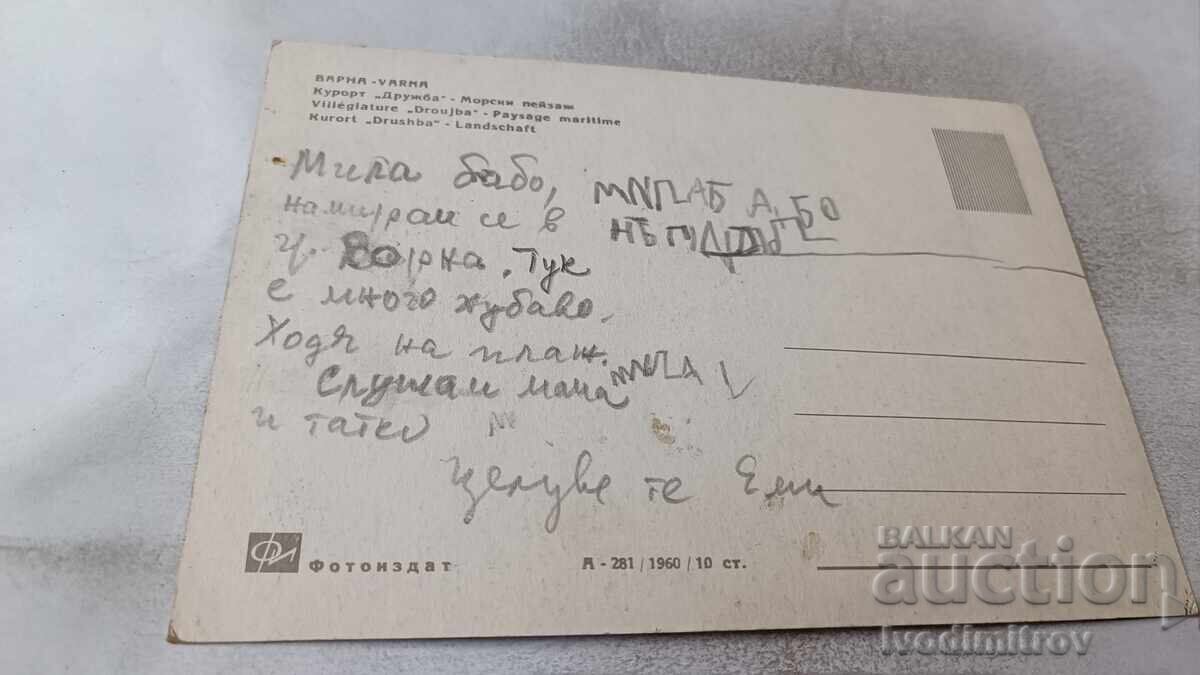 ВАРНА - VARNA
Курорт „Дружба“ - Морски пейзаж
Villégiature „Droujba“ - Paysage maritime
Kurort „Drushba“ - Landschaft
Мила бабо, МИЛАБ А, БО
намирам се в
гр. Варна. Тук
е много хубаво.
Ходя на плаж.
Слушам мама
и татко
Целуве те Ели
ФИ Фотоиздат А - 281 / 1960 / 10 ст.
BALKAN
auction
ivodimitrov